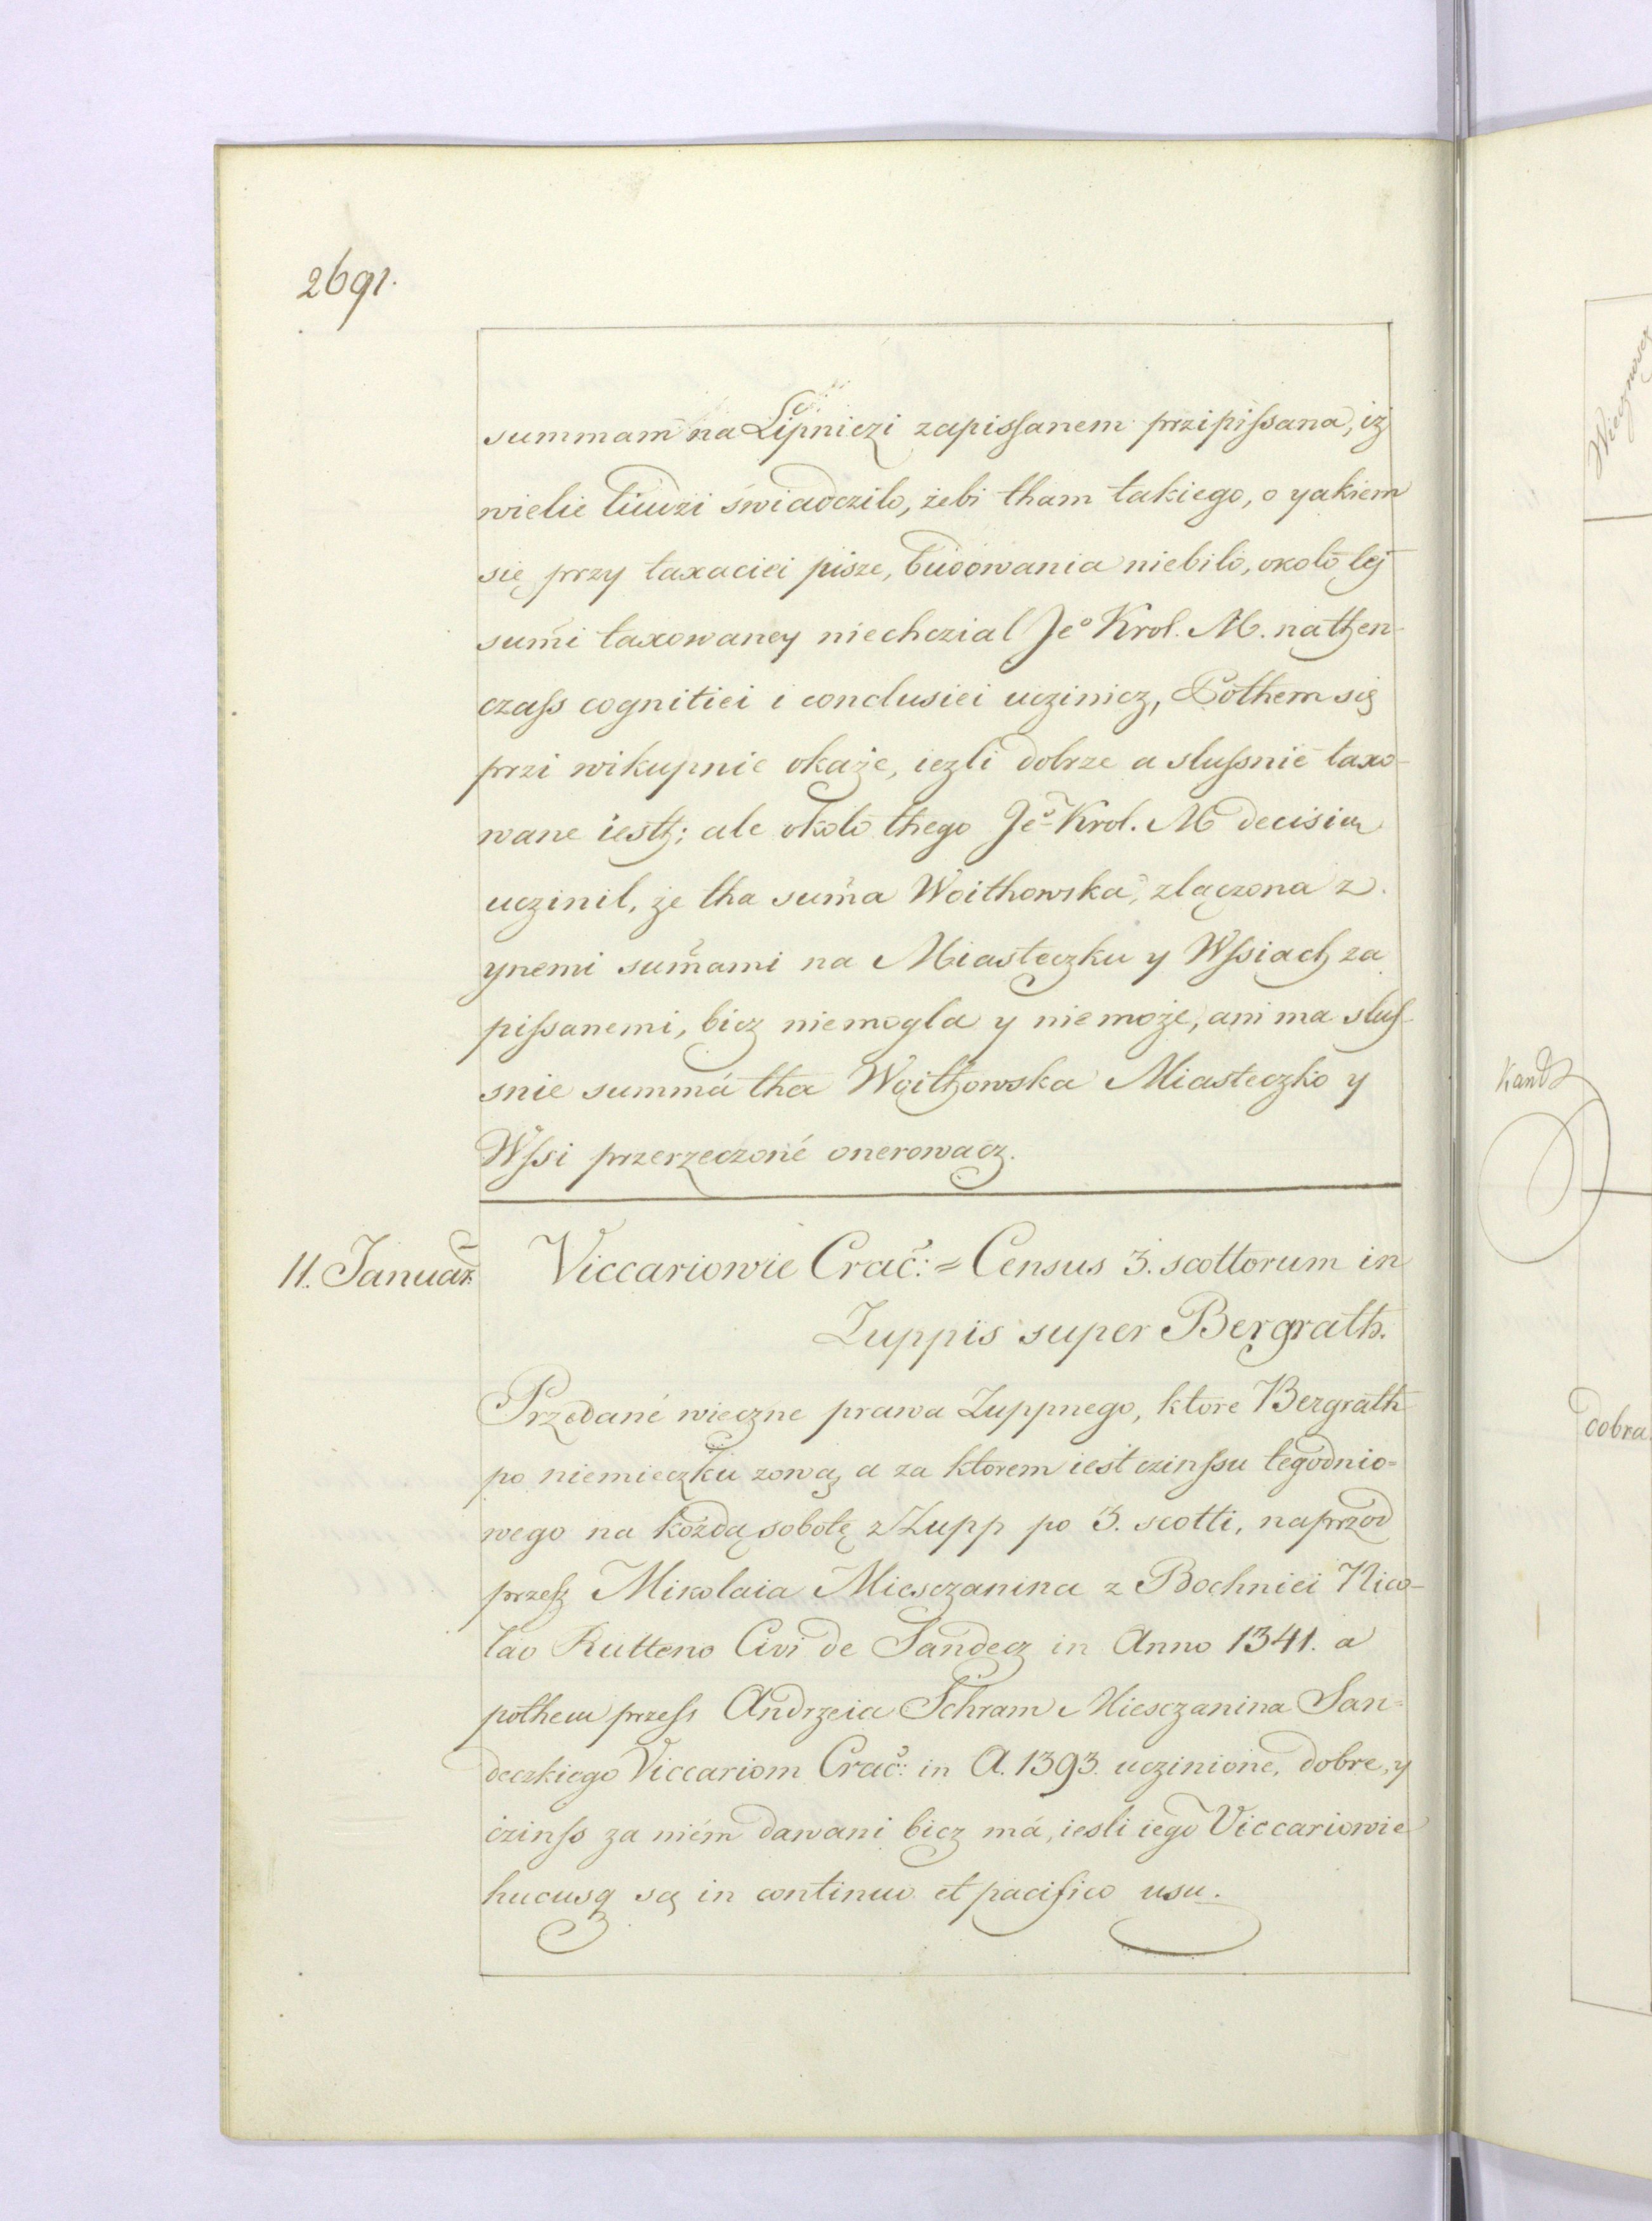 2691.
summam na Lipniczi zapissanem przipissana, iz
wielie liudzi świadczilo, żebi tham takiego, o yakiem
się przy taxaciei pisze, budowania niebiło, około tej
sumi taxowaney niechczial Jeo Krol. M. nathen-
czass cognitiei i conclusiei uczinicz, Pothem się
przi wikupnie okaże, iezli dobrze a slussnie taxo-
wane iesth; ale około thego Jeo Krol. M decisią
uczinil, że tha suma Woithowska, złączona z
ynemi sumami na Miasteczku y Wssiach za
pissanemi, bicz niemogla y niemoże, ani ma slus-
snie summá tha Woithowska Miasteczko y
Wssi przerzeczoné onerowacz.
11. Januar. Viccariowie Crac: = Census 3. scottorum in
Zuppis super Bergrath.
Przedané wieczne prawa Zuppnego, ktore Bergrath
po niemieczku zową, a za ktorem iest czinssu tegodnio=
wego na kożdą sobotę z Zupp po 3. scotti, naprzod
przesz Mikolaia Miesczanina z Bochniei Nico-
lao Rutteno Civi de Sandecz in Anno 1341. a
pothem przess Andrzeia Schram Miesczanina San=
deczkiego Viccariom Crac: in A. 1393. uczinioné, dobre, y
czinss za niém dawani bicz má, iesli iego Viccariowie
hucusq są in continuo et pacifico usu.
Kand
dobra